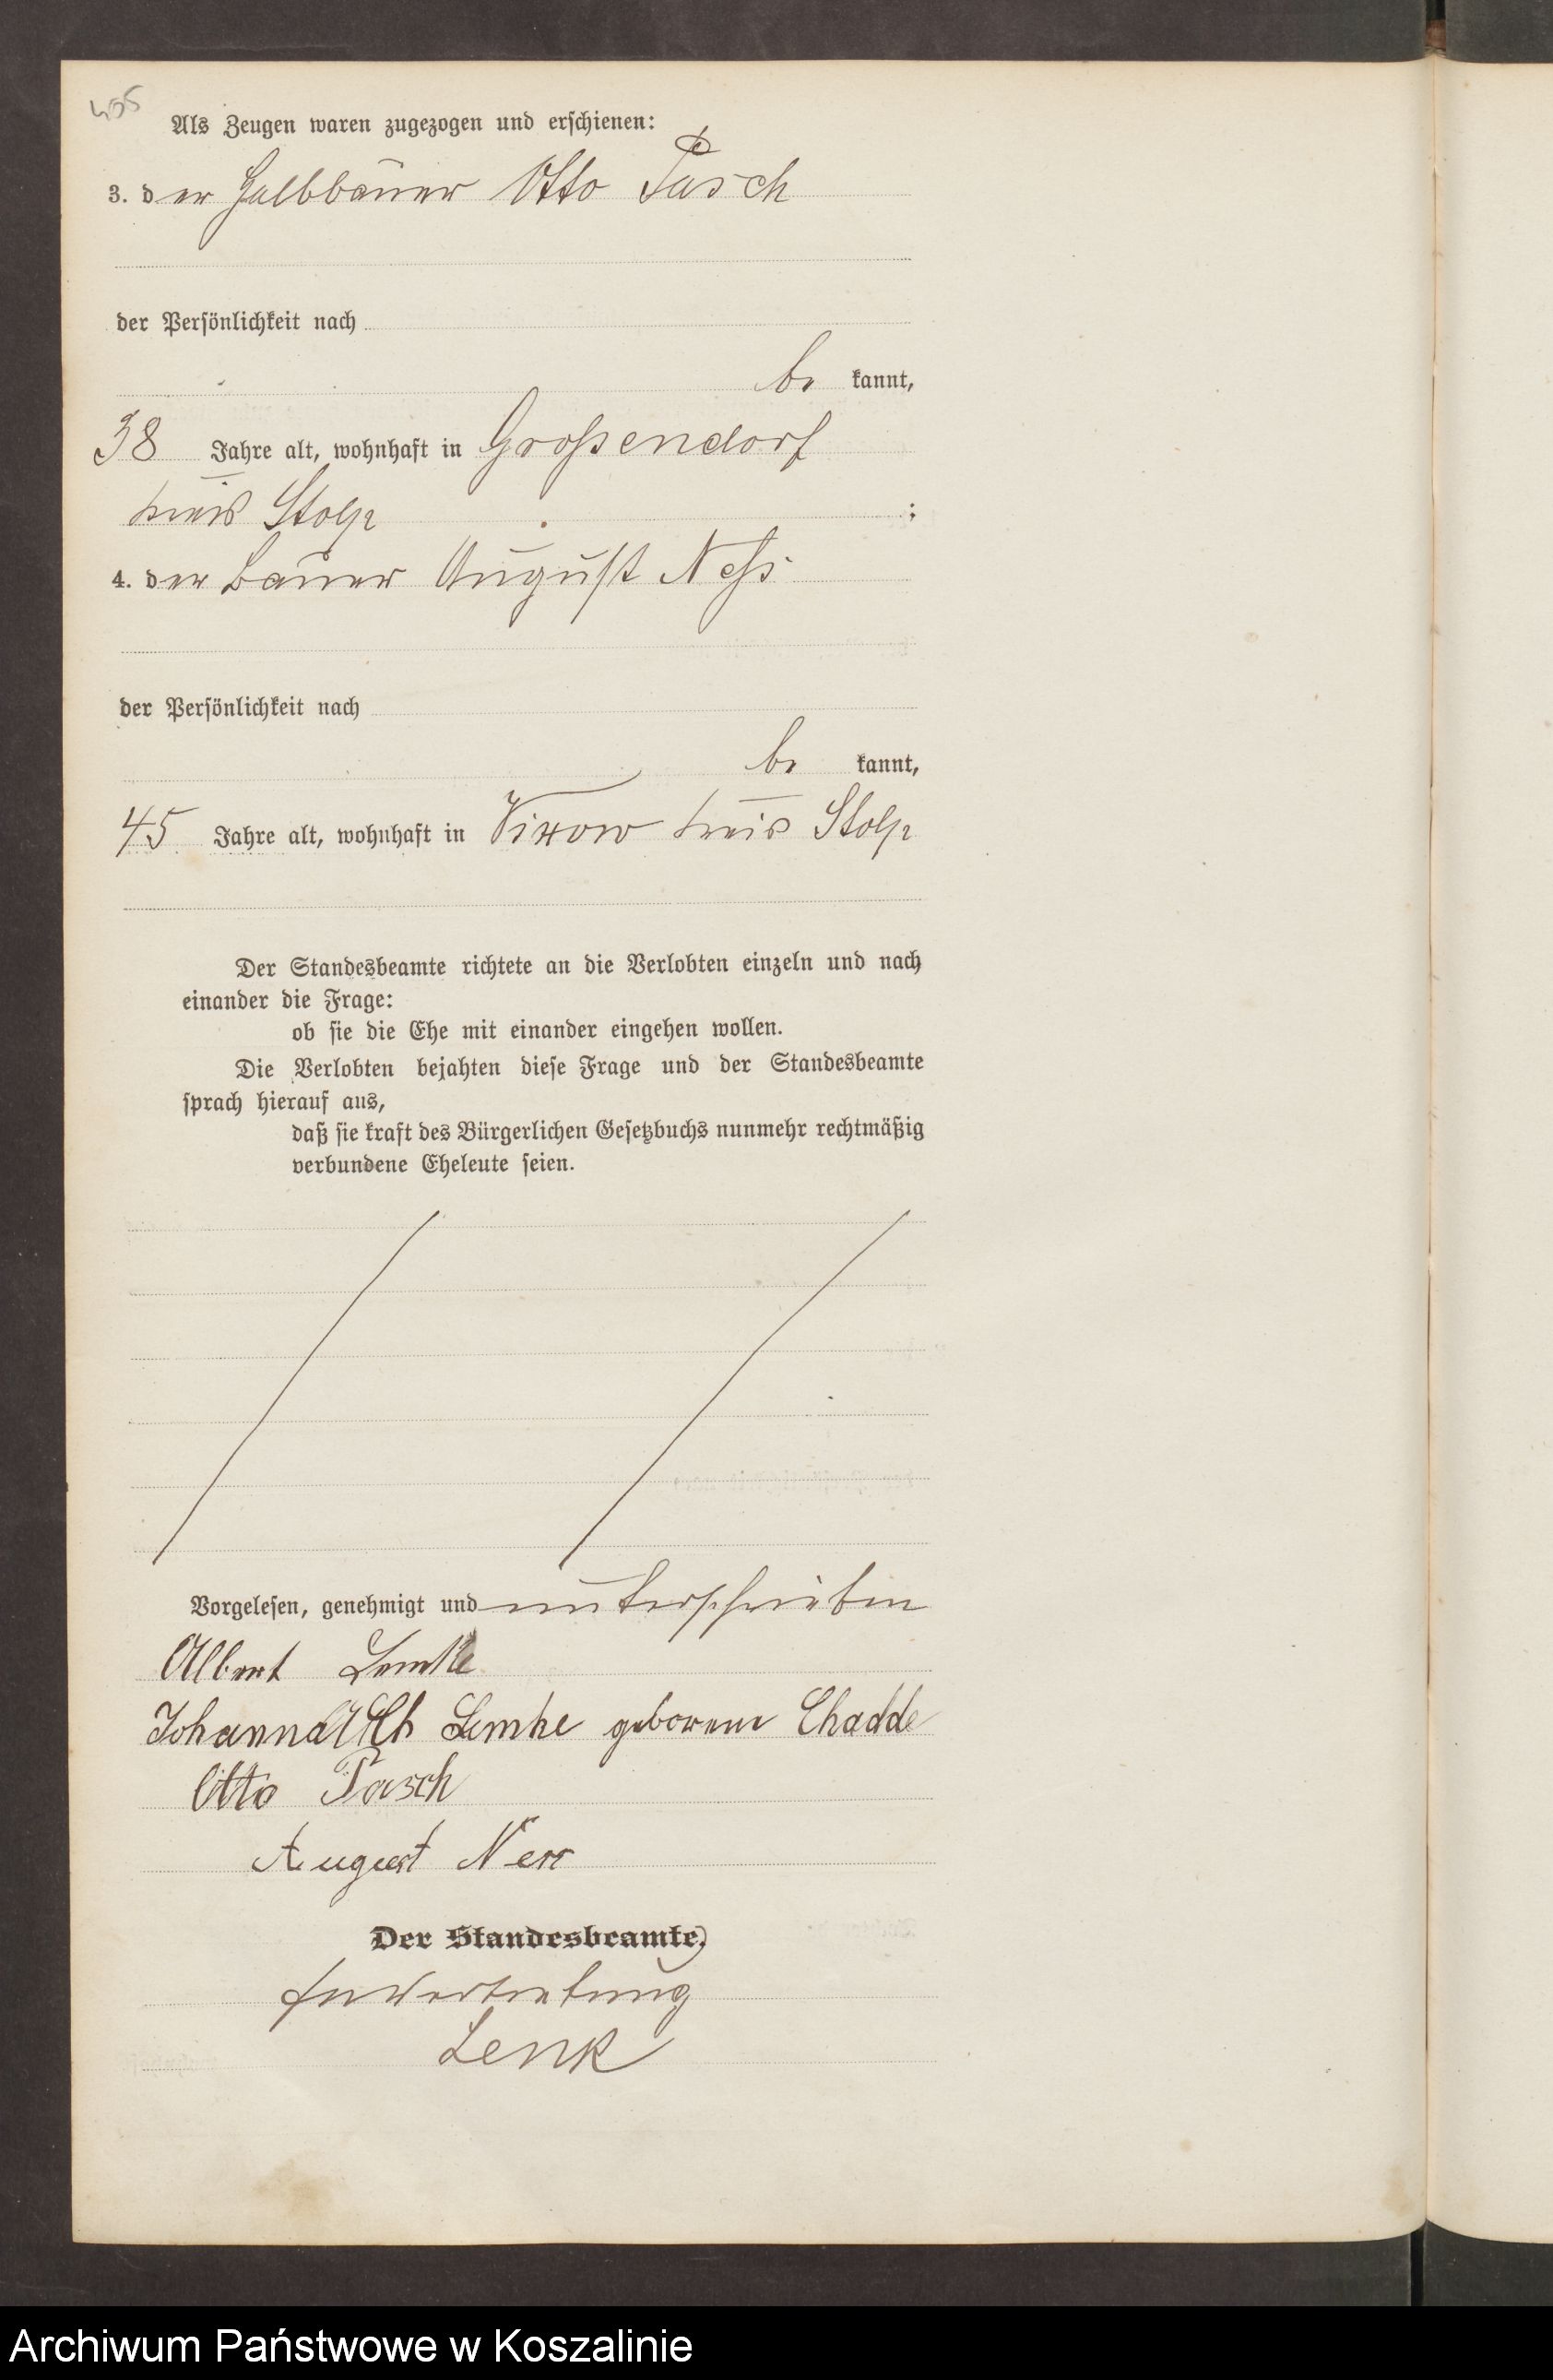 Als Zeugen waren zugezogen und erschienen:
3. der Halbbauer Otto Pasch
der Persönlichkeit nach
be kannt,
38 Jahre alt, wohnhaft in Großendorf
Kreis Stolp ;
4. der Bauer August Neß
der Persönlichkeit nach
be kannt,
45 Jahre alt, wohnhaft in Vixow Kreis Stolp
Der Standesbeamte richtete an die Verlobten einzeln und nach
einander die Frage:
ob sie die Ehe mit einander eingehen wollen.
Die Verlobten bejahten diese Frage und der Standesbeamte
sprach hierauf aus,
daß sie kraft des Bürgerlichen Gesetzbuchs nunmehr rechtmäßig
verbundene Eheleute seien.
Vorgelesen, genehmigt und unterschrieben
Albert Lemke
Johanna Lemke geborene Chadde
Otto Pasch
August Ness
Der Standesbeamte,
In Vertretung
Lenk
Archiwum Państwowe w Koszalinie